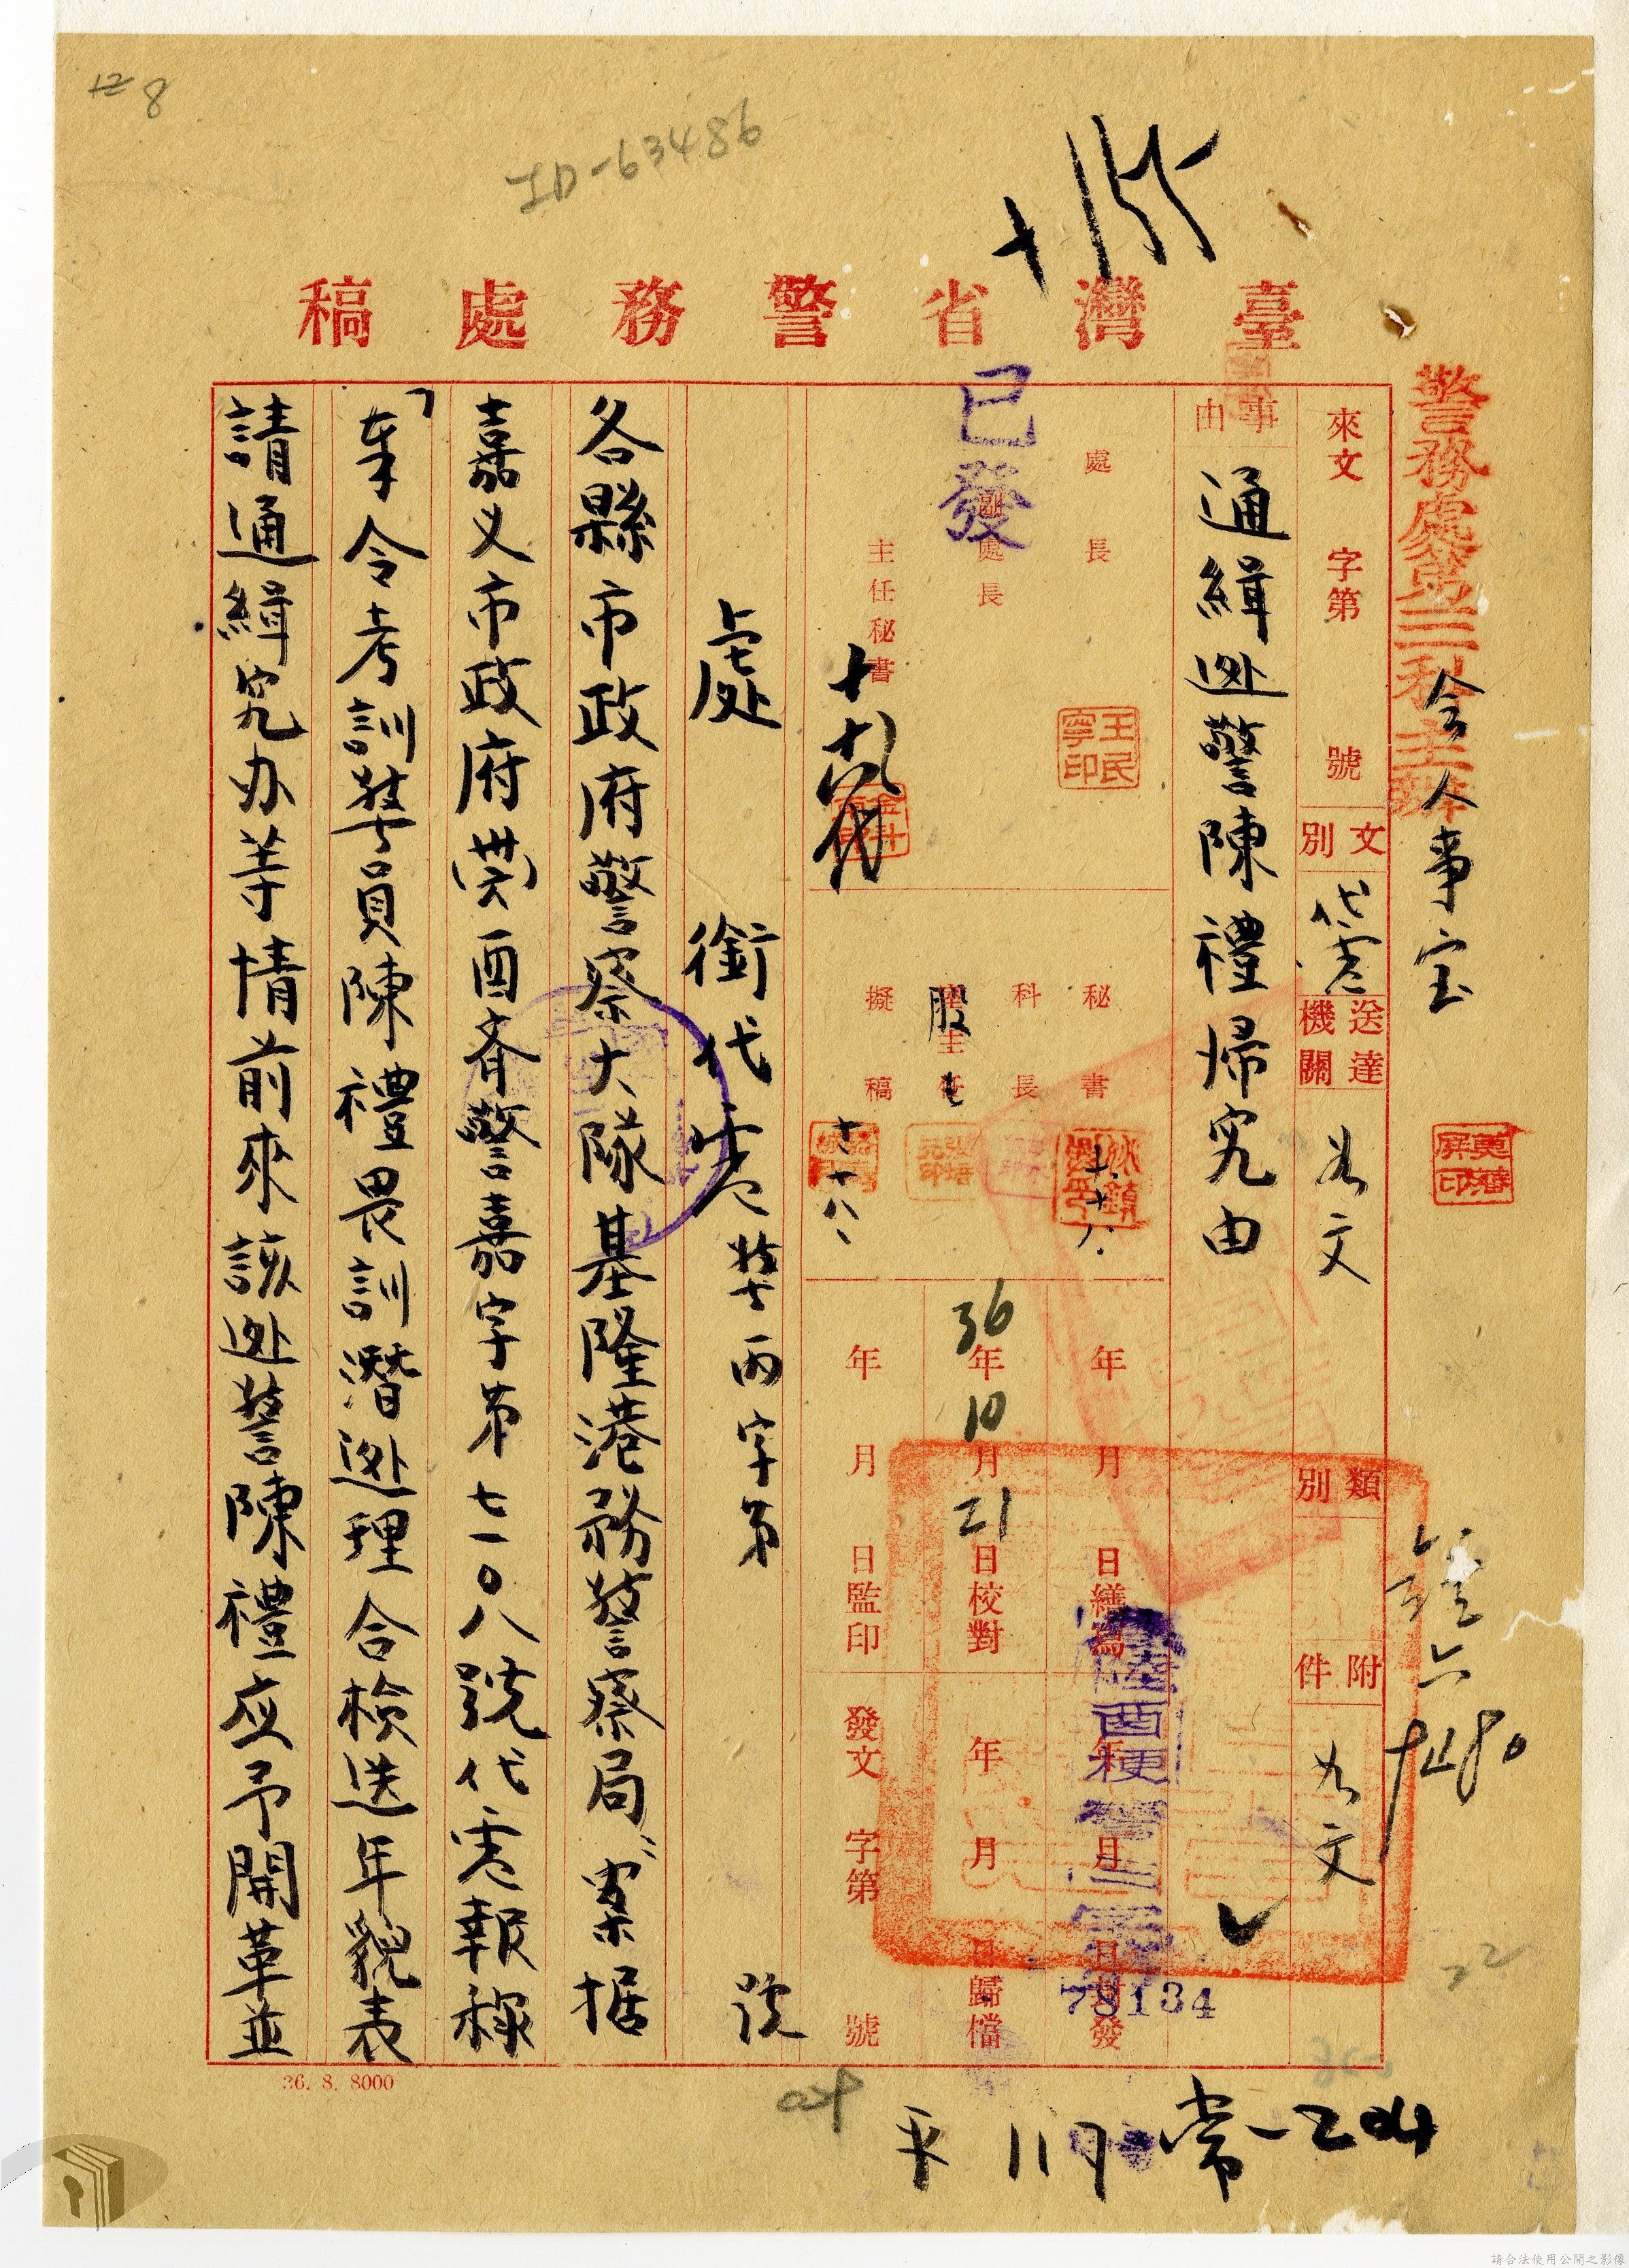 8
ID-63486
臺灣省警務處稿
警務處第三科主辦
會人事室
來文 字第 號
文別 代電
送達機關 如文
類別
附件 如文
事由 通緝逃警陳禮歸究由
處長
副處長
主任秘書
已發
王民寧印
秘書
科長
股主任
擬稿
十、十八、
年 月 日繕寫
36年10月21日校對
年 月 日監印
年 月 日封發
年 月 日歸檔
發文 字第 號
酉梗
78134
處銜代電 警丙字第 號
各縣市政府警察大隊基隆港務警察局、案据
嘉义市政府 酉齐警嘉字第七一〇八號代電報称
「奉令考訓警員陳禮畏訓潛逃理合檢送年貌表
請通緝究办等情前來該逃警陳禮应予開革並
36. 8. 8000
常-204
請合法使用公開之影像